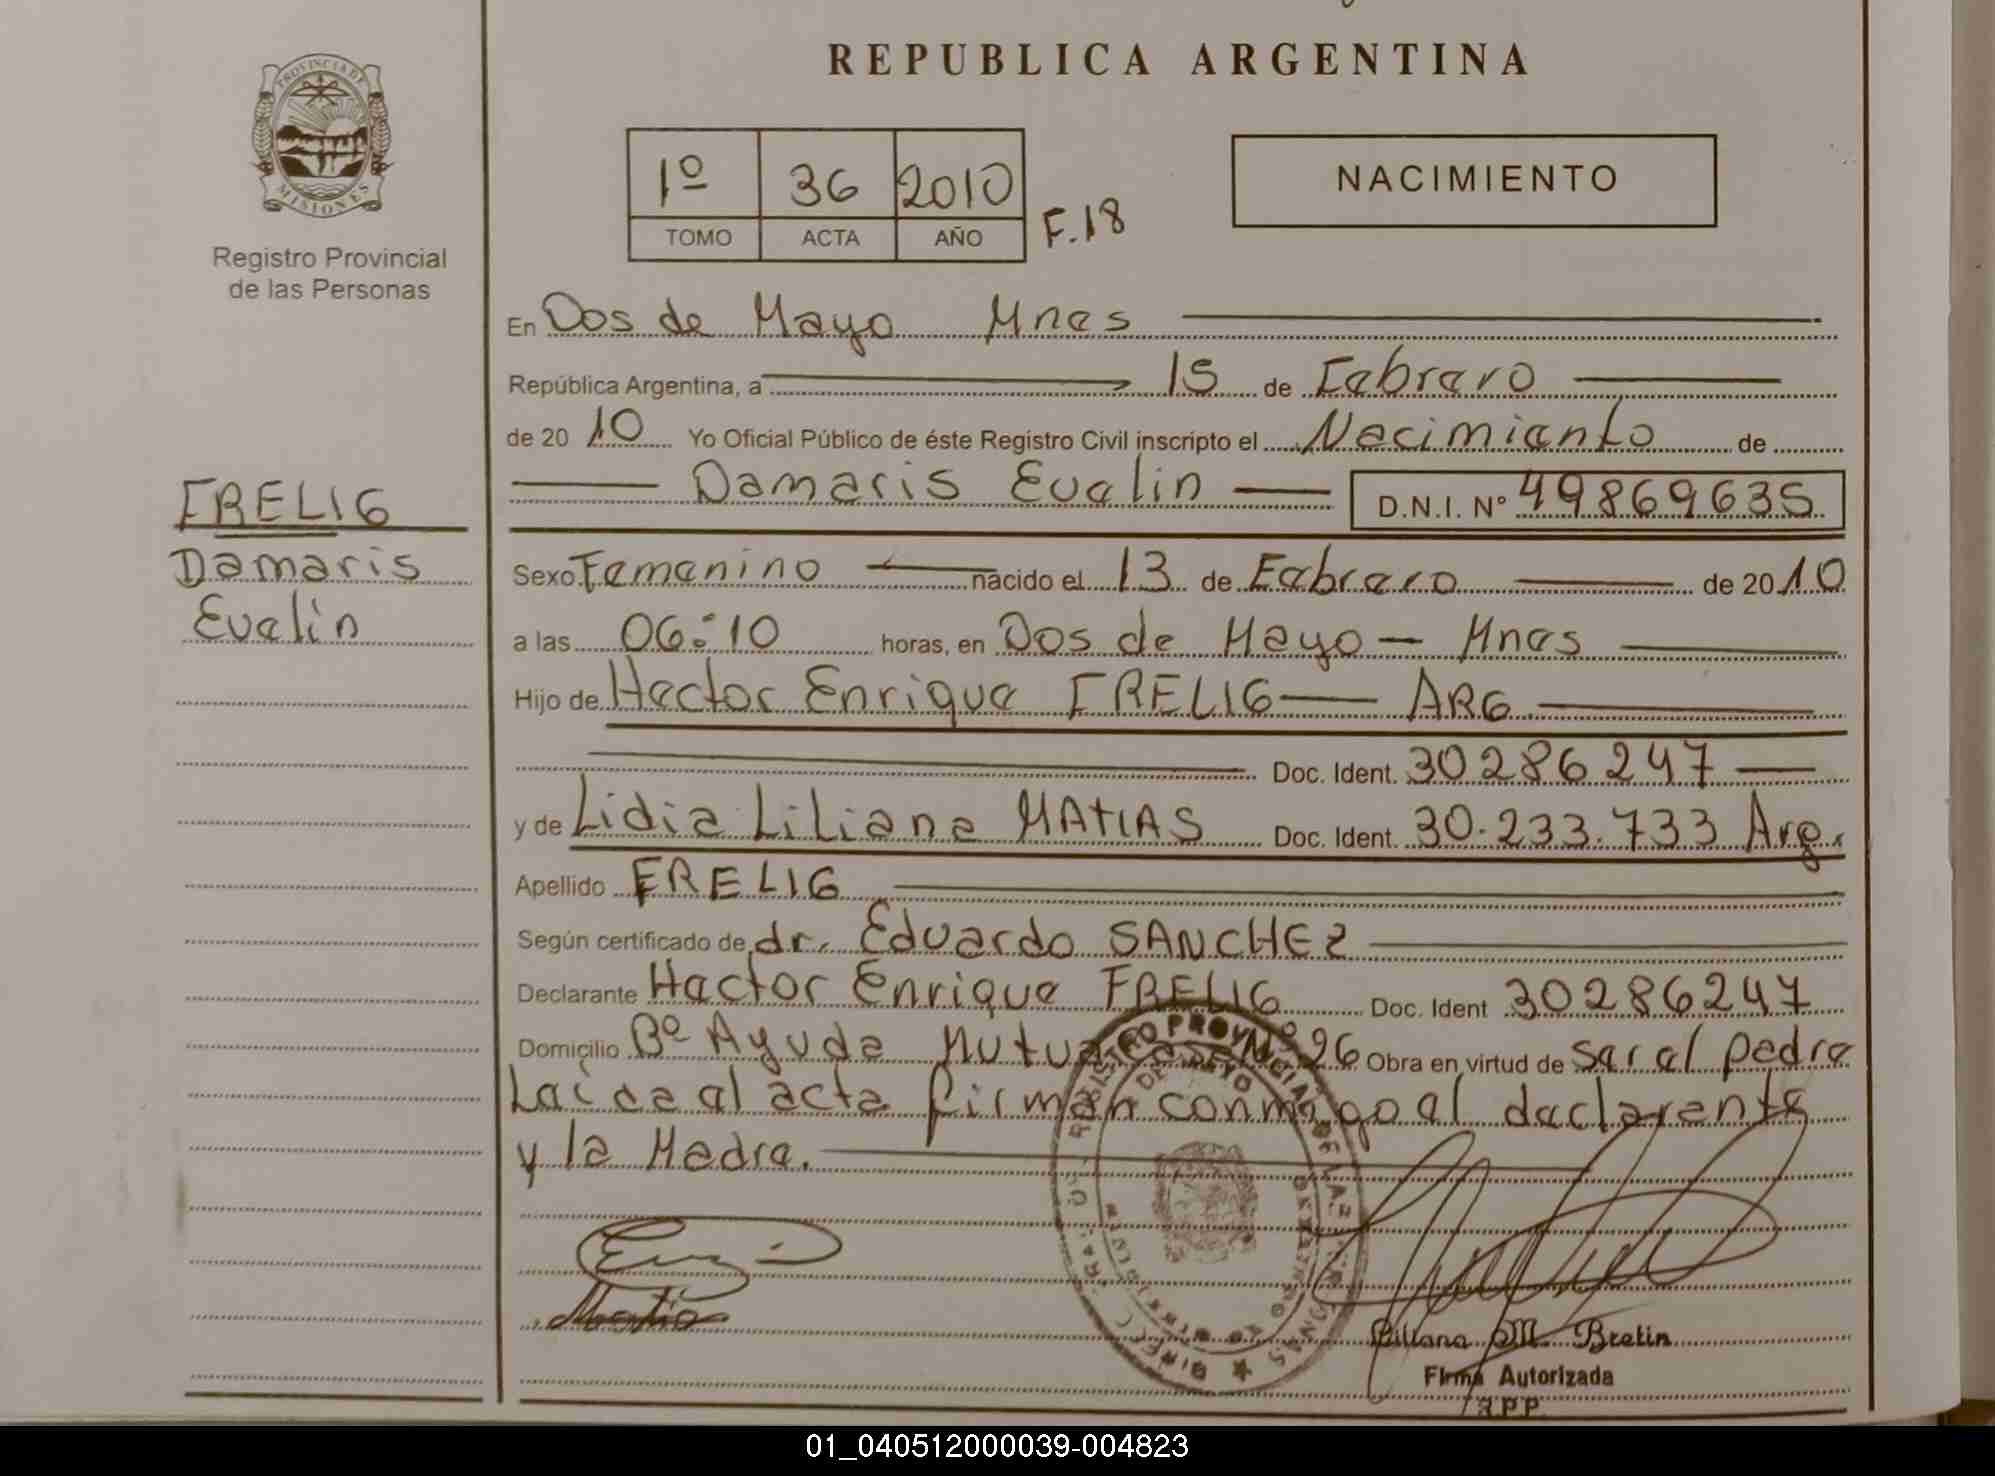 REPUBLICA ARGENTINA
PROVINCIA DE
MISIONES
Registro Provincial
de las Personas
1º 36 2010
TOMO ACTA AÑO
F.18
NACIMIENTO
En Dos de Mayo Mnes
República Argentina, a 15 de Febrero
de 2010 Yo Oficial Público de éste Registro Civil inscripto el Nacimiento de
Damaris Evelin D.N.I. Nº 49869635
FRELIG
Damaris
Evelin
Sexo Femenino nacido el 13 de Febrero de 2010
a las 06:10 horas, en Dos de Mayo - Mnes
Hijo de Hector Enrique FRELIG ARG
Doc. Ident. 30286247
y de Lidia Liliana MATIAS Doc. Ident. 30.233.733 Arg.
Apellido FRELIG
Según certificado de dr. Eduardo SANCHEZ
Declarante Hector Enrique FRELIG Doc. Ident 30286247
Domicilio Bº Ayuda Mutua Nº 26 Obra en virtud de ser el padre
Leída el acta firman conmigo el declarante
y la Madre.
Matias
Liliana M. Bretin
Firma Autorizada
R.P.P.
01_040512000039-004823